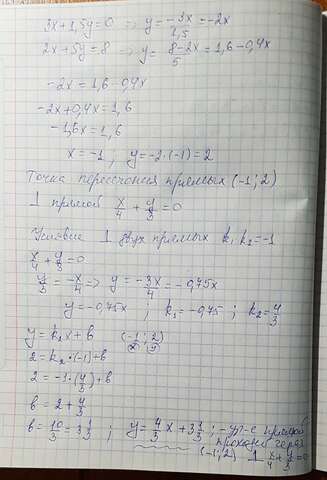 3x+1,5y=0 => y=-3x/1,5=-2x
2x+5y=8 => y=8-2x/5=1,6-0,4x
-2x=1,6-0,4x
-2x+0,4x=1,6
-1,6x=1,6
x=-1; y=-2·(-1)=2
Точка пересечения прямых (-1;2)
⊥ прямой x/4+y/3=0
Условие ⊥ двух прямых k₁k₂=-1
x/4+y/3=0
y/3=-x/4 => y=-3x/4=-0,75x
y=-0,75x; k₁=-0,75; k₂=4/3
y=k₂x+b (-1;2)
x y
2=k₂·(-1)+b
2=-1·(4/3)+b
b=2+4/3
b=10/3=3 1/3; y=4/3x+3 1/3; -ур-е прямой
проходящ через
(-1;2) ⊥ x/4+y/3=0